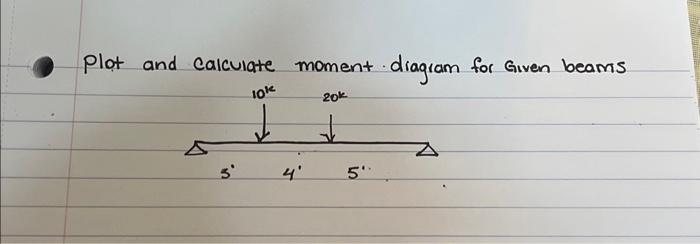 Plot and calculate moment diagram for Given beams
10k 20k
3' 4' 5'